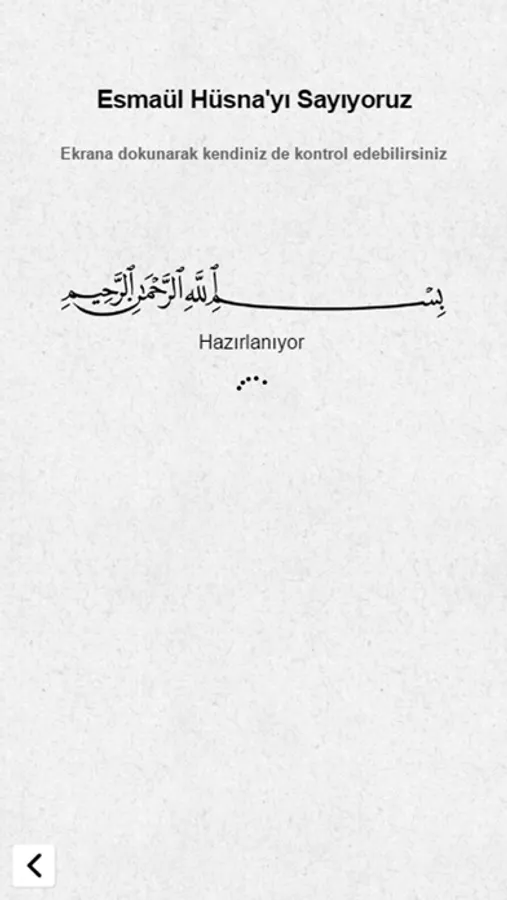 Esmaül Hüsna'yı Sayıyoruz
Ekrana dokunarak kendiniz de kontrol edebilirsiniz
بِسْمِ اللَّهِ الرَّحْمَٰنِ الرَّحِيمِ
Hazırlanıyor